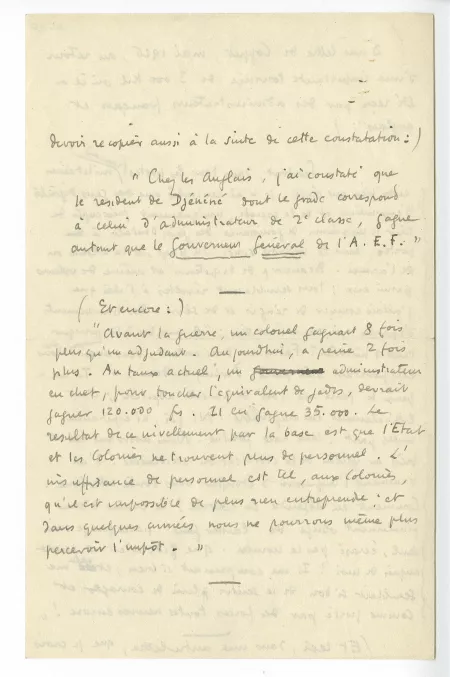 devoir recopier aussi à la suite de cette constatation :)
" Chez les Anglais, j'ai constaté que
le resident de Djénéné dont le grade correspond
à celui d'administrateur de 2e classe, gagne
autant que le Gouverneur Général de l'A. E. F. "
( Et encore : )
" Avant la guerre, un colonel gagnait 8 fois
plus qu'un adjudant. Aujourd'hui, à peine 2 fois
plus. Au taux actuel, un administrateur
en chef, pour toucher l'équivalent de jadis, devrait
gagner 120.000 frs. Il en gagne 35.000. Le
resultat de ce nivellement par la base est que l'Etat
et les Colonies ne trouvent plus de personnel. L'
insuffisance de personnel est tel, aux Colonies,
qu'il est impossible de plus rien entreprendre ; et
dans quelques années nous ne pourrons même plus
percevoir l'impôt. "